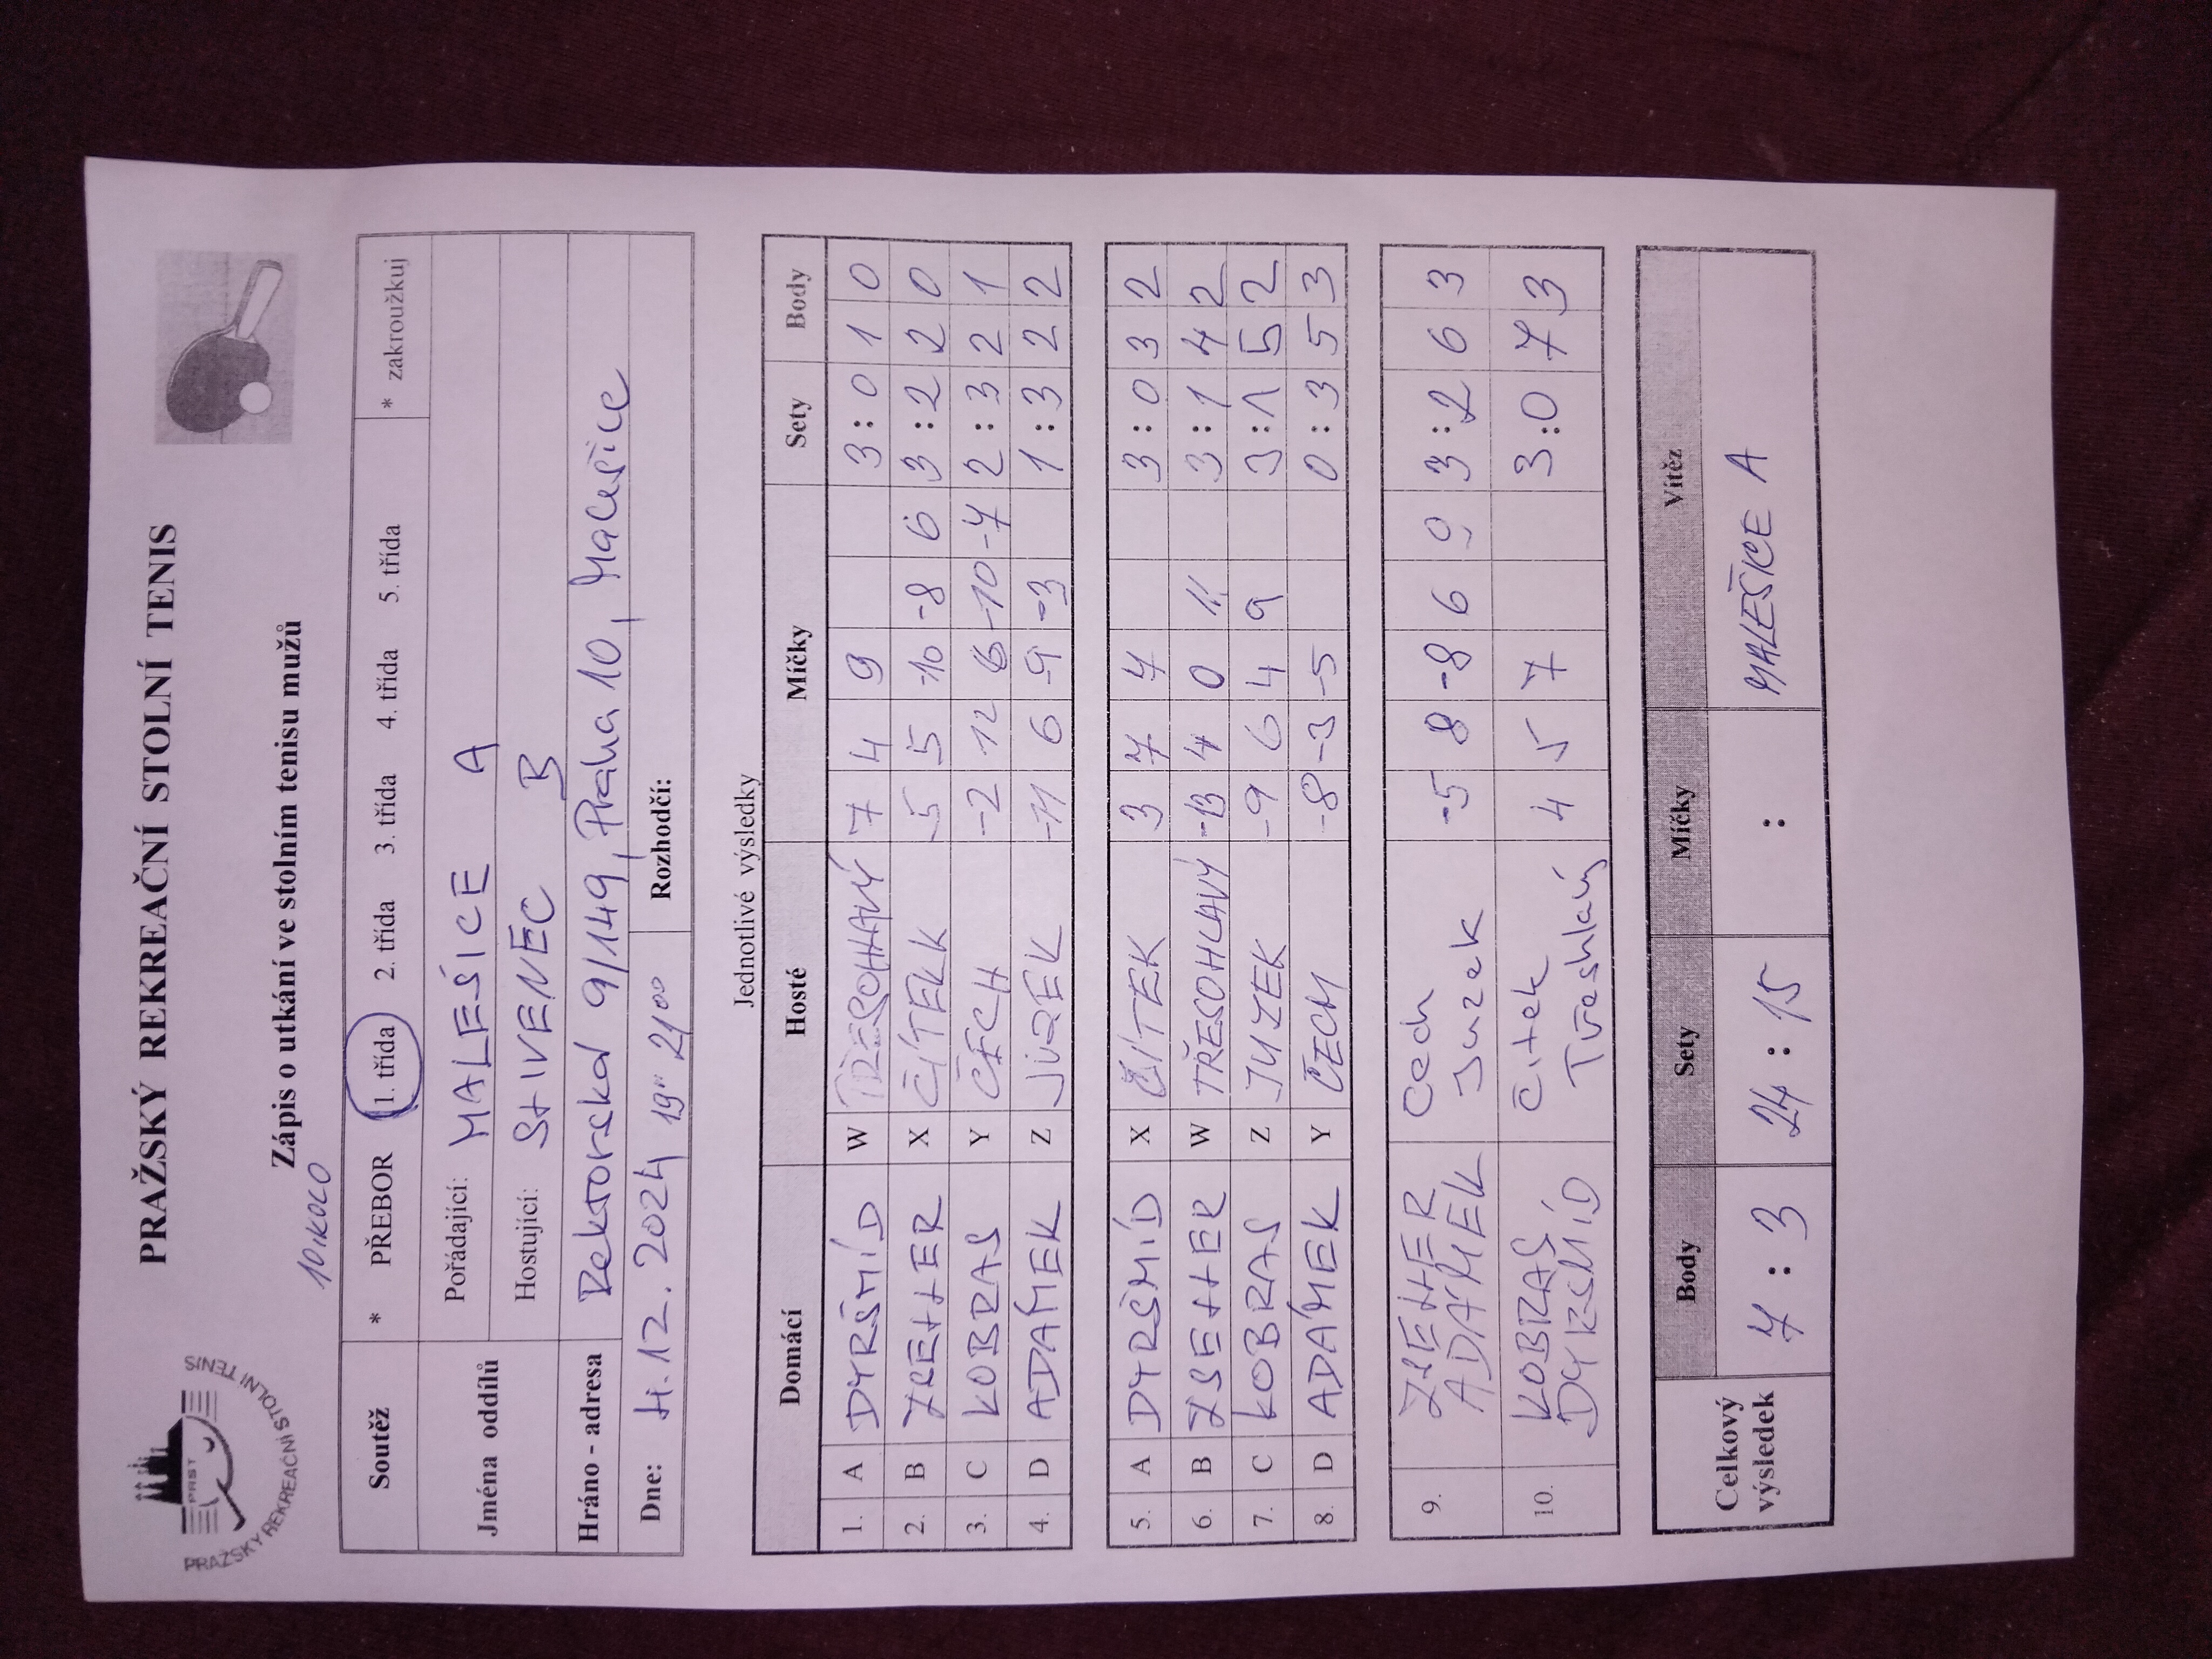 PRAŽSKÝ REKREAČNÍ STOLNÍ TENIS
PRST
PRAŽSKÝ REKREAČNÍ STOLNÍ TENIS
Zápis o utkání ve stolním tenisu mužů
10 IKOLO
Soutěž * PŘEBOR 1. třída 2. třída 3. třída 4. třída 5. třída * zakroužkuj
Jména oddílů Pořádající: MALEŠICE A
Hostující: STIVENEC B
Hráno - adresa Rektorská 9/149, Praha 10, Malešice
Dne: 4.12.2024 19⁰⁰ 21⁰⁰ Rozhodčí:
Jednotlivé výsledky
Domácí Hosté Míčky Sety Body
1. A DYRŠMÍD W TŘESOHLAVÝ 7 4 9 3 : 0 1 0
2. B ZRETHER X ČÍTEK -5 5 -10 -8 6 3 : 2 2 0
3. C KOBRAS Y ČECH -2 12 6 -10 -7 2 : 3 2 1
4. D ADÁMEK Z JUZEK -11 6 -9 -3 1 : 3 2 2
5. A DYRŠMÍD X ČÍTEK 3 7 7 3 : 0 3 2
6. B W TŘESOHLAVÝ -13 4 0 11 3 : 1 4 2
7. C KOBRAS Z JUZEK -9 6 4 9 3 : 1 5 2
8. D ADÁMEK Y ČECH -8 -3 -5 0 : 3 5 3
9. ADÁMEK Čech Juzek -5 8 -8 6 9 3 : 2 6 3
10. KOBRAS DYRŠMÍD Čítek Třesohlavý 4 5 7 3 : 0 7 3
Celkový výsledek Body Sety Míčky Vítěz
7 : 3 24 : 15 : MALEŠICE A